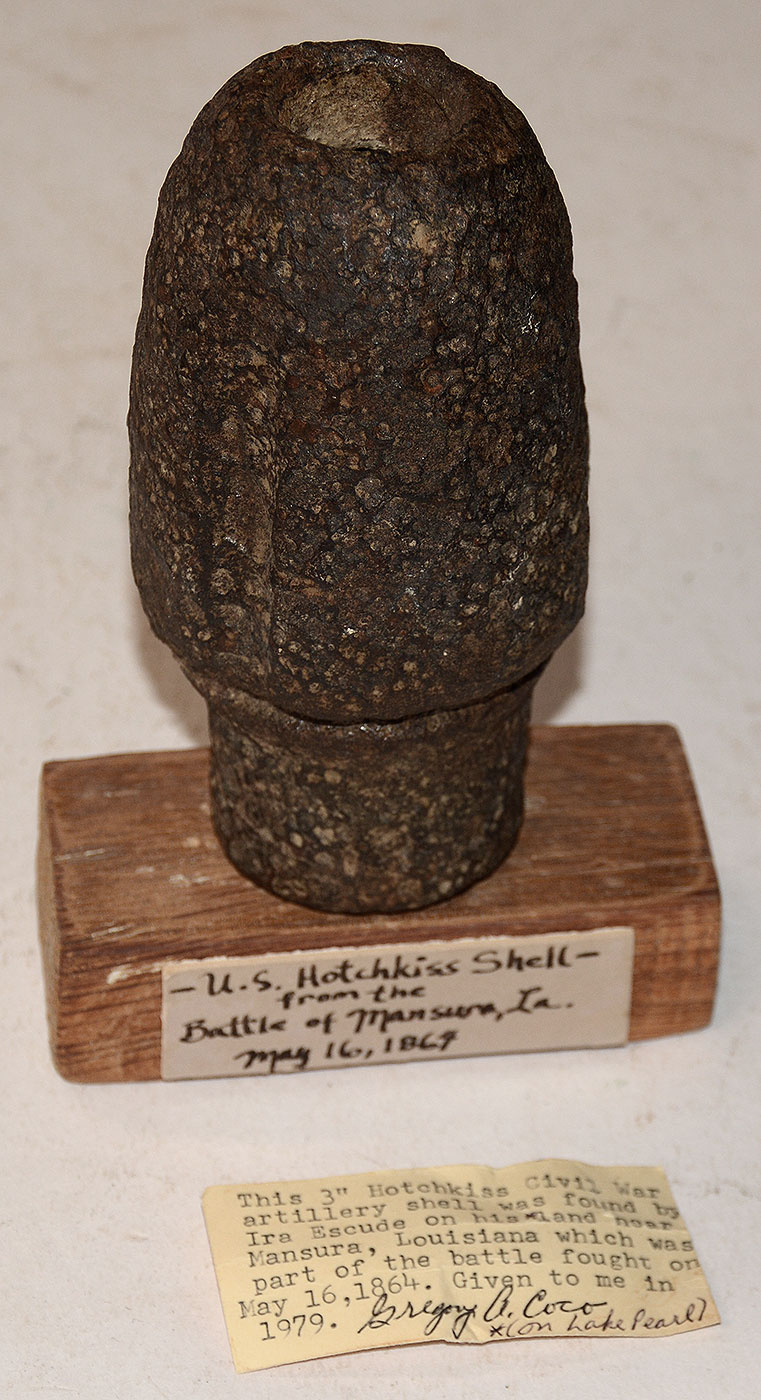 - U.S. Hotchkiss Shell -
from the
Battle of Mansura, La.
May 16, 1864
This 3" Hotchkiss Civil War
artillery shell was found by
Ira Escude on his*land near
Mansura, Louisiana which was
part of the battle fought on
May 16,1864. Given to me in
1979. Gregory A. Coco
*(on Lake Pearl)